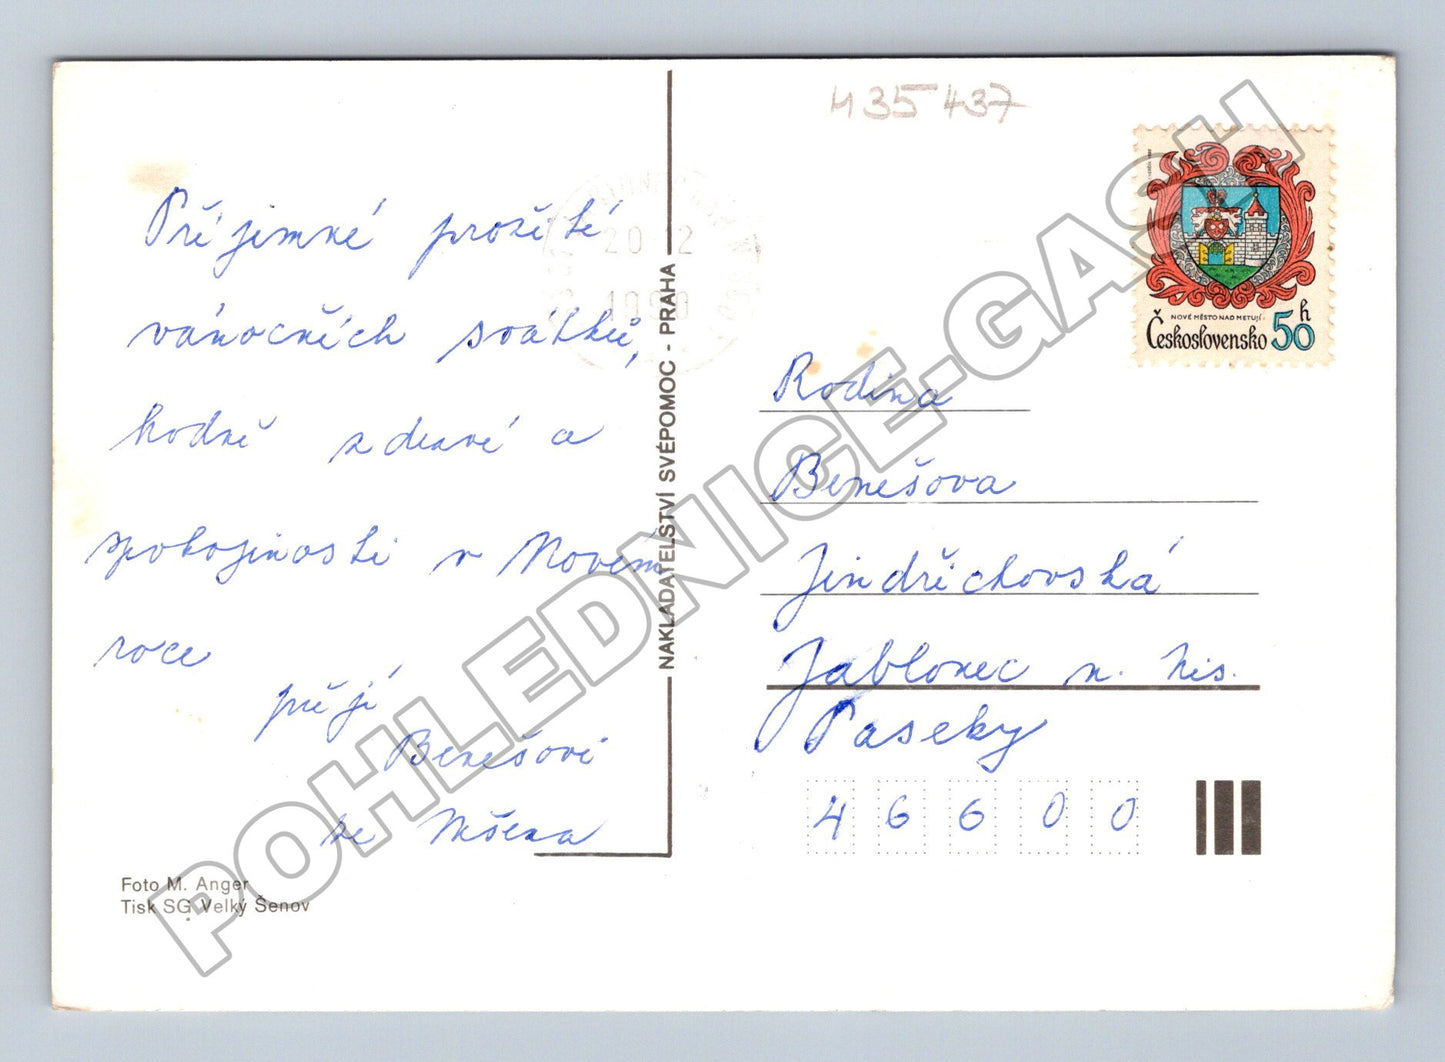 Příjemné prožité
vánočních svátků,
hodně zdraví a
spokojenosti v Novém
roce
přejí
Benešovi
ze Mšena
Foto M. Anger
Tisk SG Velký Šenov
NAKLADATELSTVÍ SVÉPOMOC - PRAHA
20 12
1990
435 437
NOVÉ MĚSTO NAD METUJÍ
Československo 50 h
Rodina
Benešova
Jindřichovská
Jablonec n. Nis.
Paseky
46600
POHLEDNICE-GASH